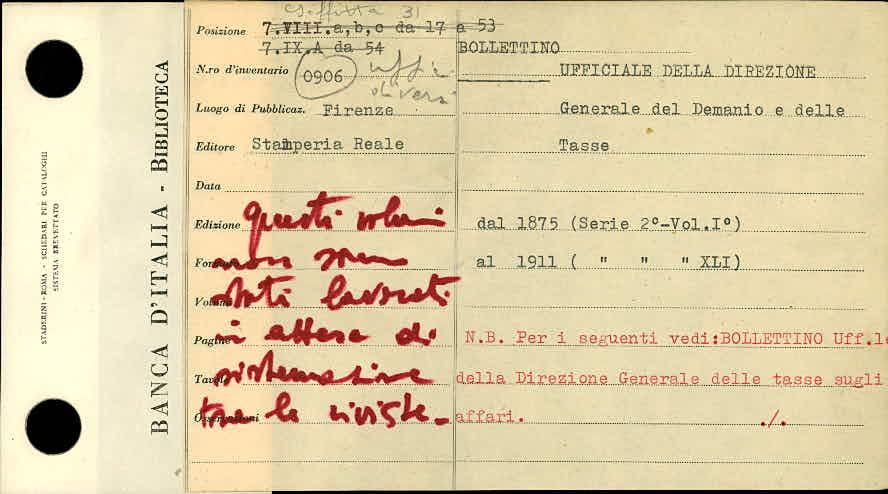 Soffitta 31
Posizione 7.VIII.a,b,c da 17 a 53
7.IX.A da 54 BOLLETTINO
N.ro d'inventario 0906 uffi. diversi UFFICIALE DELLA DIREZIONE
Luogo di Pubblicaz. Firenze Generale del Demanio e delle
Editore Stamperia Reale Tasse
Data
Edizione dal 1875 (Serie 2°-Vol.I°)
Formato al 1911 ( " " " XLI)
Volumi
Pagine N.B. Per i seguenti vedi:BOLLETTINO Uff.le
Tavole della Direzione Generale delle tasse sugli
Osservazioni affari. ./.
questi volumi
non sono
stati lavorati
in attesa di
sistemazione
tra le riviste -
BANCA D'ITALIA - BIBLIOTECA
STADERINI - ROMA - SCHEDARI PER CATALOGHI
SISTEMA BREVETTATO